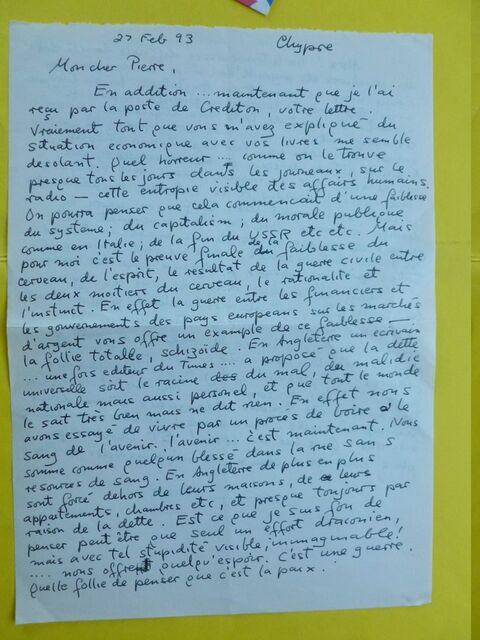 27 Feb 93 Chypre
Mon cher Pierre,
En addition ... maintenant que je l'ai
reçu par la poste de Crediton, votre lettre.
Vraiement tout que vous m'avez expliqué du
situation economique avec vos livres me semble
desolant. Quel horreur ... comme on le trouve
presque tous les jours dans les journeaux, sur le
radio — cette entropie visible des affairs humains.
On pourra penser que cela commencait d'une faiblesse
du systeme; du capitalism; du morale publique
comme en Italie; de la fin du USSR etc etc. Mais
pour moi c'est le preuve finale de la faiblesse du
cerveau, de l'esprit, le resultat de la guerre civile entre
les deux moitiers du cerveau, le rationalite et
l'instinct. En effet la guerre entre les financiers et
les gouvenements des pays europeans sur les marchés
d'argent vous offre un example de ce faiblesse —
la follie totalle, schizoide. En Angleterre un ecrivain
... une fois editeur du Times .... a proposé que la dette
universelle soit le racine du mal, du malidie
nationale mais aussi personel, et que tout le monde
le sait très bien mais ne dit rien. En effet nous
avons essayé de vivre par un procés de boire le
sang de l'avenir. l'avenir ... c'est maintenant. Nous
somme comme quelqun blessé dans la rue sans
resources de sang. En Angleterre de plus en plus
sont forcé dehors de leurs maisons, de leurs
appartements, chambres etc, et presque toujours par
raison de la dette. Est ce que je suis fou de
penser peut être que seul un effort draconien,
mais avec tel stupidité visible, inimaginable!
.... nous offrent quelqu'espour. C'est une guerre.
Quelle follie de penser que c'est la paix.